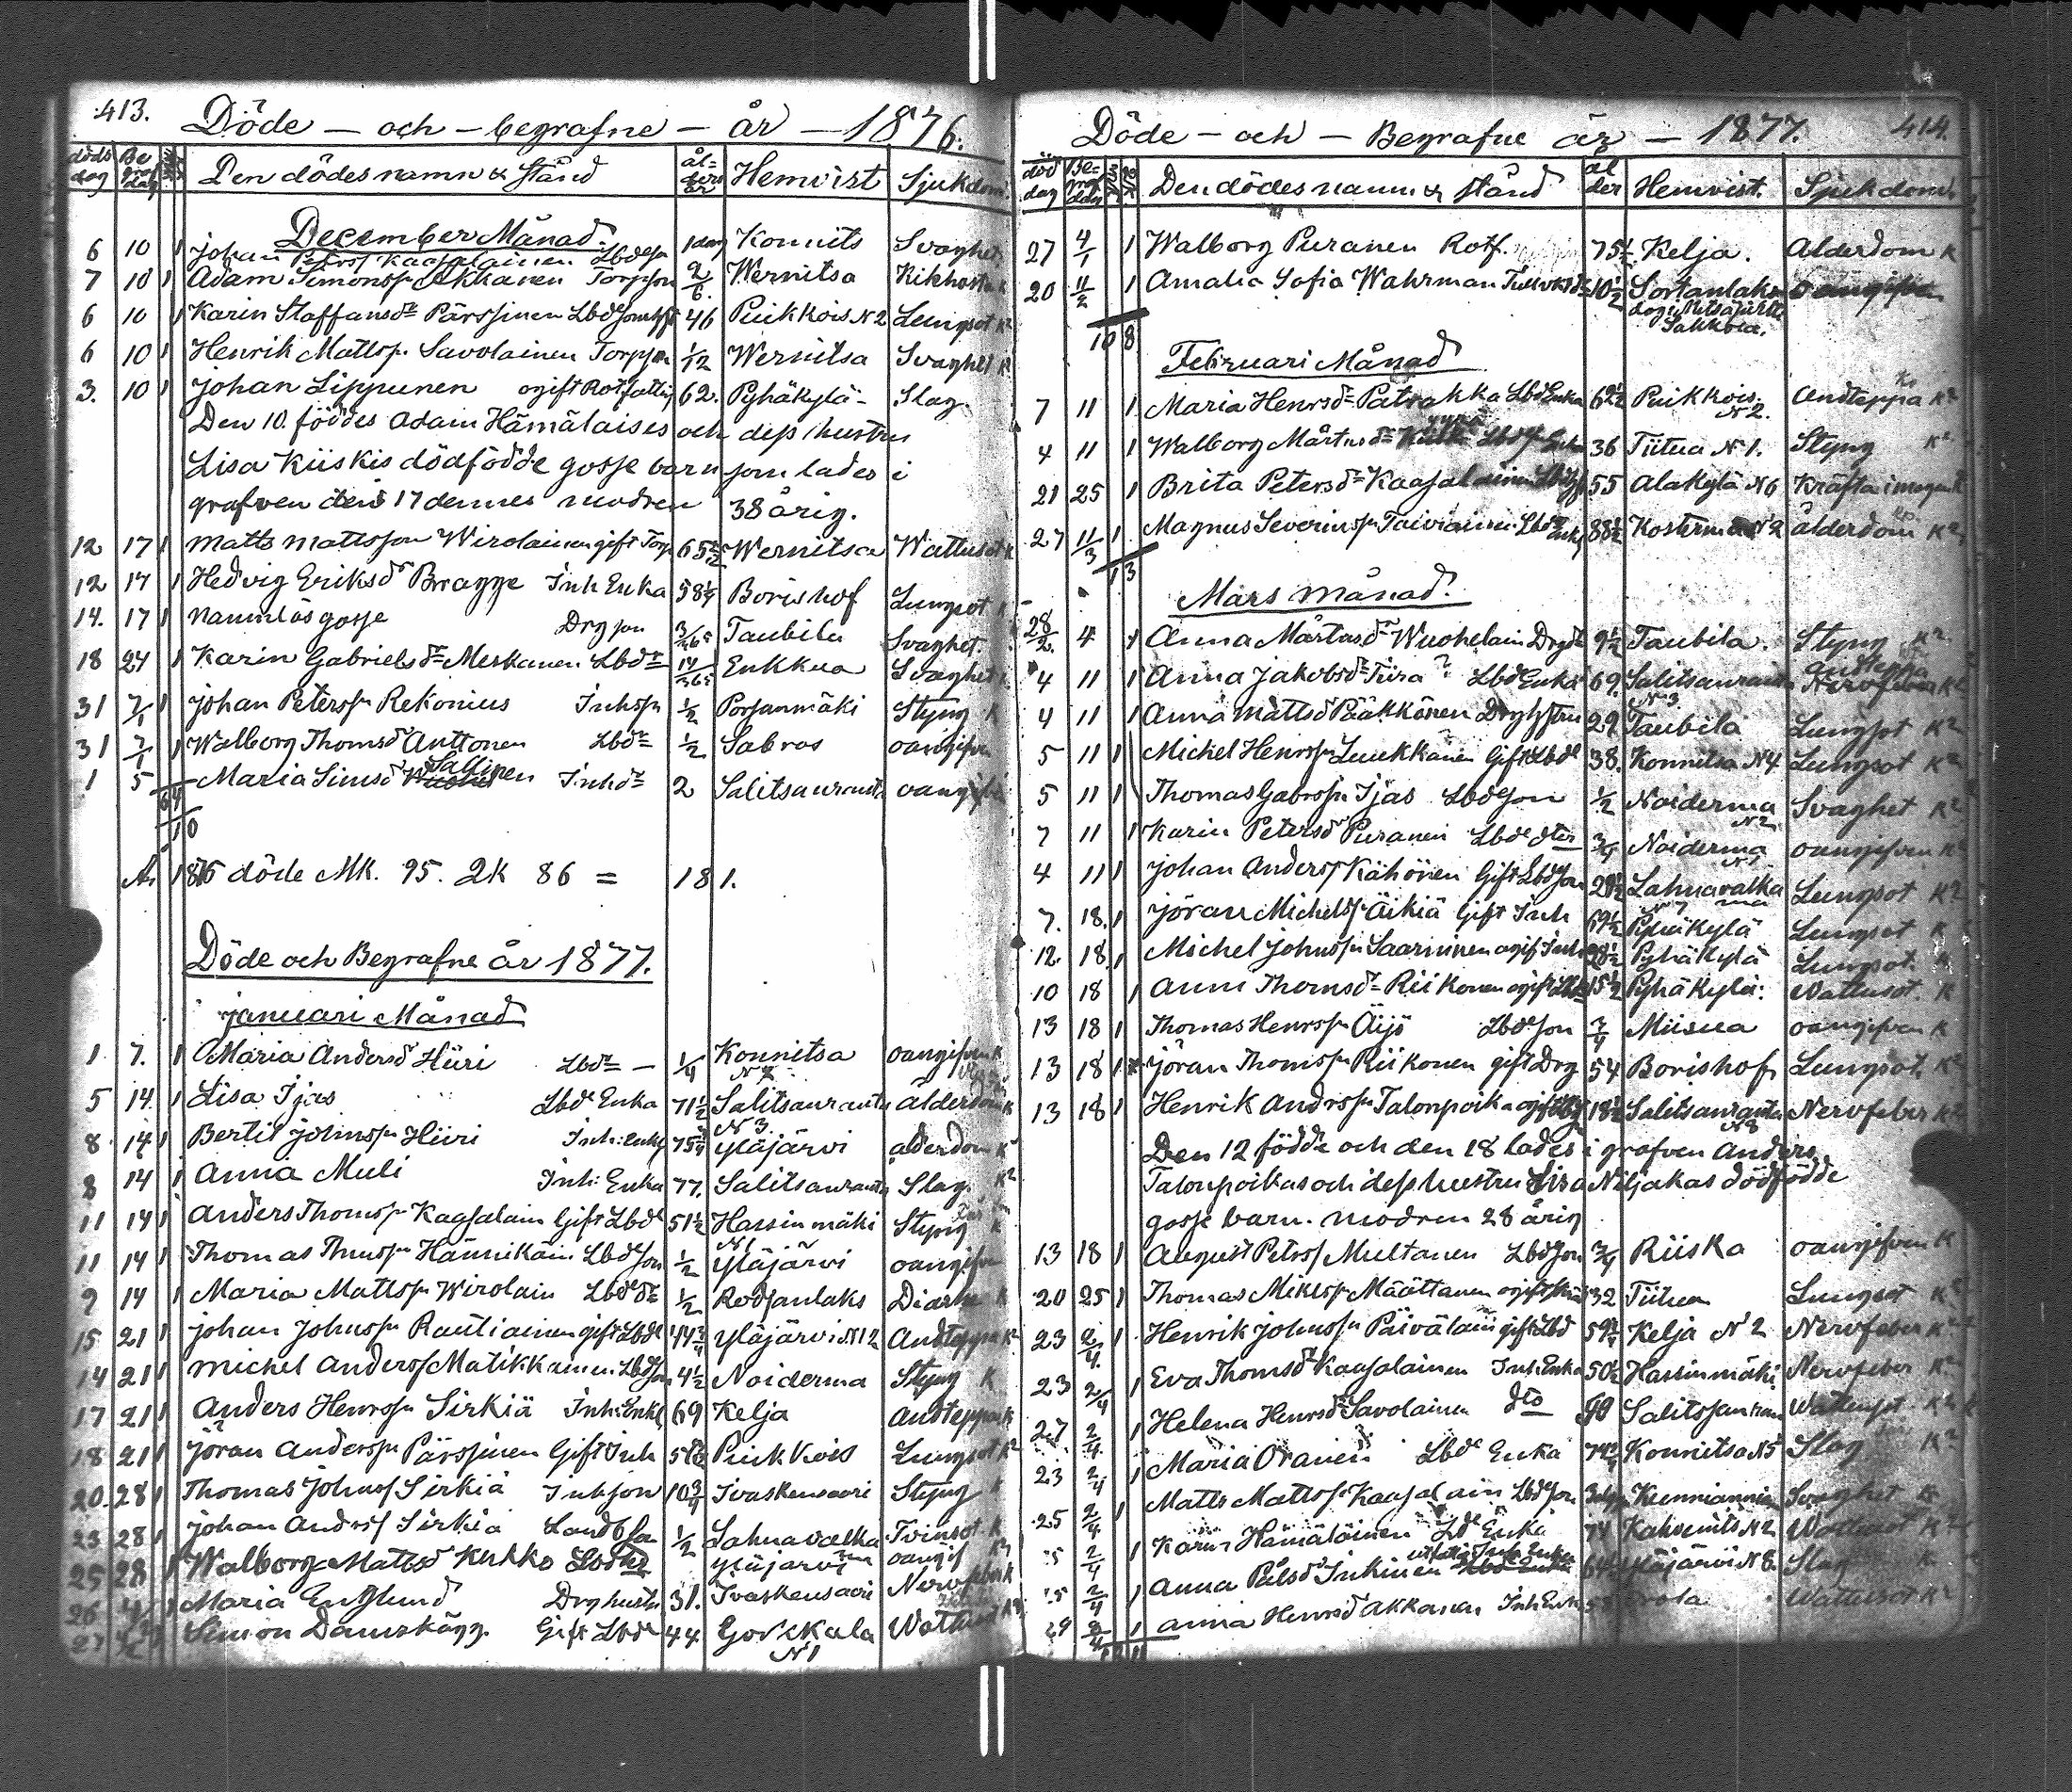 413.
Döde — och — begrafne — år — 1876.
döds dag Be graf dag Den dödes namn & stånd ål- ders år Hemvist Sjukdom
December Månad
6 10 1 Johan Peterss Kaasalainen Lbdeson 1 dag Konnits Svaghet
7 10 1 Adam Simonss Akkanen Torpson 2/6 Wernitsa Kikhosta
6 10 1 Karin Staffansdr Pärssinen Lbdsonhstr 46 Puikkois N2 Lungsot K2
6 10 1 Henrik Mattss. Savolainen Torpson 1/12 Wernitsa Svaghet K
3. 10 1 Johan Lippunen ogift Rotfattig 62. Pyhäkylä Slag
Den 10. föddes Adam Hämäläises och dess hustru
Lisa Kiiskis dödfödde gosse barn som lades i
grafven den 17 dennes modren 38 årig.
12 17 1 Matts Mattsson Wirolainen gift Torp 65 1/2 Wernitsa Wattusot K
12 17 1 Hedvig Eriksdr Bragge Inh Enka 58 1/4 Borishof Lungsot K
14. 17 1 Namnlös gosse Drgson 3/365 Taubila Svaghet.
18 24 1 Karin Gabrielsdr Meskanen Lbdr 14/365 Enkkua Svaghet
31 7/1 1 Johan Peterss Rekonius Inhsn 1/2 Porsanmäki Styng K
31 7/1 1 Walborg Thomsd Anttonen Lbdr 1/2 Sabros oangifven
1 5 Maria Simsd Sallinen Inhdr 2 Salitsauranta oangifv
6 4
10
År 1876 döde Mk. 95. Qk 86 = 181.
Döde och Begrafne år 1877.
Januari Månad
1 7. 1 Maria Andersd Hiiri Lbdr — 1/4 Konnitsa N oangifven K
5 14 1 Lisa Ijas Lbde Enka 71 1/2 Salitsauranta N3 ålderdom K
8 14 1 Bertil Johnss Hiiri Inh: Enkl 75 3/4 Yläjärvi alderdom K
8 14 1 Anna Muli Inh: Enka 77. Salitsauranta Slag. K2
11 14 1 Anders Thomss Kaasalain Gift Lbde 51 1/2 Hassinmäki N1 Styng K
11 14 1 Thomas Thmss Hännikäin Lbdeson 1/2 Yläjärvi oangifven
9 14 1 Maria Mattss Wirolain Lbdedr 1/2 Rodsanlaks Diarhe K
15 21 1 Johan Johnss Rautiainen gift Lbde 44 3/4 Yläjärvi N12 Andteppa K2
14 21 1 Michel Anderss Matikkainen Lbdson 4 1/2 Noiderma Styng K
17 21 1 Anders Henrss Sirkiä Inh: Enkl 69 Kelja Andteppa K
18 21 1 Jöran Anderss Pärssinen Gift Inh Puikkois Lungsot K2
20. 28 1 Thomas Johnss Sirkiä Inhson 10 3/4 Ivaskensaari Styng K
23 28 1 Johan Andrss Sirkiä Landbson 1/2 Lahnavalka Tvinsot K
25 28 1 Walborg Mattsd Kukko Yläjärvi oangif K
26 1 Maria Englund Drghustr 31. Ivaskensaari Nervfeber K
27 Simon Damskägg Gift Lbde 44. Gorekala N1 Wattusot
414.
Döde — och — Begrafne år — 1877.
död dag Be- graf dag Den dödes namn & stånd ål der Hemvist. Sjukdom
27 4/1 1 Walborg Puranen Rotf. 75 1/2 Kelja. Alderdom K
20 11/2 1 Amalia Sofia Wahrman 10 1/2 Sortanlaks
Sakkola.
10 8
Februari Månad
7 11 1 Maria Henrsdr Patrakka Lbd Enka 62 1/2 Puikkois. N2. Andteppa K2
4 11 1 Walborg Mårtnsdr 36 Tiitua N1. Styng K2
21 25 1 Brita Petersdr Kaasalainen 55 Alakylä N6 Kräfta i magen K
27 11/3 1 Magnus Severinss Taiviainen Lbde Enkl 88 1/2 Kosterma N2 ålderdom K2
1 3
Mars månad.
28/2 4 1 Anna Mårtnsdr Wuohelain Drgdr 9 1/2 Taubila. Styng K2
4 11 1 Anna Jakobsdr Tiira Lbd Enka 69. Salitsauranta N3 andteppa K2
4 11 1 Anna Mattsd Pääkkönen Drghstru 29 Taubila Lungsot K2
5 11 1 Michel Henrss Luukkanen Gift Lbde 38. Konnitsa N4 Lungsot K2
5 11 1 Thomas Gabrss Ijas Lbdeson 1/2 Noiderma N2 Svaghet K2
7 11 1 Karin Petersd Puranen Lbde dter 3/4 Noiderma N1 oangifven K2
4 11 1 Johan Anderss Kähönen Gift Lbdson 29 1/2 Lahnavalka Lungsot K2
7. 18. 1 Jöran Michelss Äikiä Gift Inh 69 1/2 Pyhäkylä Lungsot K
12. 18. 1 Michel Johnss Saarninen ogift Inh 28 1/2 Pyhäkylä Lungsot. K
10 18 1 Anni Thomsdr Riikonen ogift 15 1/2 Pyhäkylä. Wattusot. K
13 18 1 Thomas Henrss Äijö Lbdeson 3/4 Miisua oangifven K
13 18 1 Jöran Thomss Riikonen gift Drg 54 Borishof Lungsot. K2
13 18 1 Henrik Andrss Talonpoika ogift 18 1/2 Salitsauranta N8 Nervfeber K2
Den 12 födde och den 18 lades i grafven Anders
Talonpoikas och dess hustru Lisa Niljakas dödfödde
gosse barn. modren 28 årig
13 18 1 August Petrss Multanen Lbdson 3/4 Riiska oangifven K
20 25 1 Thomas Mikls Määttänen ogift 32 Tiitua Lungsot K2
23 2/4. 1 Henrik Johnss Päiväläin gift Lbd 59 3/4 Kelja N2 Nervfeber K2
23 2/4 1 Eva Thomsd Kaasalainen Inh: Enka 50 1/2 Hassinmäki Nervfeber K2
27 2/4 1 Helena Henrsdr Savolainen dto Wattusot K2
23 2/4 1 Maria Oranen Lbde Enka Konnitsa N5 Slag K2
25 2/4 1 Matts Mattss Kaasalain Lbdson Kunnianniemi Svaghet K
2/4 1 Karin Hämäläinen Lbd Enka 74 Kahvenits N2 Wattusot K2
2/4 1 Anna Pålsd Inkinen Yläjärvi N8. Slag
29 2/4 1 Anna Henrsd Akkanen Inh Enka Wattusot K2